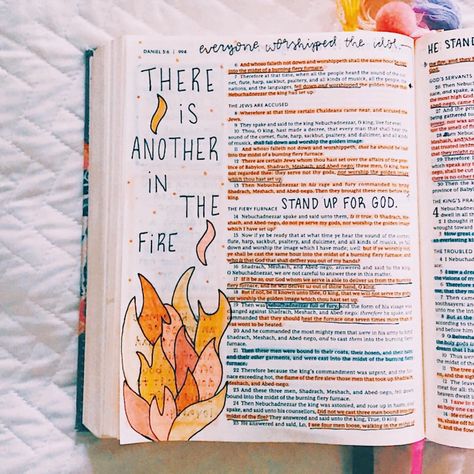 DANIEL 3:6 | 998
everyone worshipped the idol
THERE
IS
ANOTHER
IN
THE
FIRE
6 And whoso falleth not down and worshippeth shall the same hour be cast
into the midst of a burning fiery furnace.
7 Therefore at that time, when all the people heard the sound of the cor-
net, flute, harp, sackbut, psaltery, and all kinds of musick, all the people, the
nations, and the languages, fell down and worshipped the golden image that
Nebuchadnezzar the king had set up.
THE JEWS ARE ACCUSED
8 Wherefore at that time certain Chaldeans came near, and accused the
Jews.
9 They spake and said to the king Nebuchadnezzar, O king, live for ever.
10 Thou, O king, hast made a decree, that every man that shall hear the
sound of the cornet, flute, harp, sackbut, psaltery, and dulcimer, and all kinds
of musick, shall fall down and worship the golden image:
11 And whoso falleth not down and worshippeth, that he should be cast
into the midst of a burning fiery furnace.
12 There are certain Jews whom thou hast set over the affairs of the prov-
ince of Babylon, Shadrach, Meshach, and Abed-nego; these men, O king, have
not regarded thee: they serve not thy gods, nor worship the golden image
which thou hast set up.
13 Then Nebuchadnezzar in his rage and fury commanded to bring
Shadrach, Meshach, and Abed-nego. Then they brought these men before the
king.
THE FIERY FURNACE
STAND UP FOR GOD.
14 Nebuchadnezzar spake and said unto them, Is it true, O Shadrach,
Meshach, and Abed-nego, do not ye serve my gods, nor worship the golden image
which I have set up?
15 Now if ye be ready that at what time ye hear the sound of the cornet,
flute, harp, sackbut, psaltery, and dulcimer, and all kinds of musick, ye fall
down and worship the image which I have made; well: but if ye worship not,
ye shall be cast the same hour into the midst of a burning fiery furnace; and
who is that God that shall deliver you out of my hands?
16 Shadrach, Meshach, and Abed-nego, answered and said to the king,
O Nebuchadnezzar, we are not careful to answer thee in this matter.
17 If it be so, our God whom we serve is able to deliver us from the burning
fiery furnace, and he will deliver us out of thine hand, O king.
18 But if not, be it known unto thee, O king, that we will not serve thy gods,
nor worship the golden image which thou hast set up.
19 Then was Nebuchadnezzar full of fury, and the form of his visage was
changed against Shadrach, Meshach, and Abed-nego: therefore he spake, and
commanded that they should heat the furnace one seven times more than it
was wont to be heated.
20 And he commanded the most mighty men that were in his army to bind
Shadrach, Meshach, and Abed-nego, and to cast them into the burning fiery
furnace.
21 Then these men were bound in their coats, their hosen, and their hats,
and their other garments, and were cast into the midst of the burning fiery
furnace.
22 Therefore because the king's commandment was urgent, and the fur-
nace exceeding hot, the flame of the fire slew those men that took up Shadrach,
Meshach, and Abed-nego.
23 And these three men, Shadrach, Meshach, and Abed-nego, fell down
bound into the midst of the burning fiery furnace.
24 Then Nebuchadnezzar the king was astonied, and rose up in haste, and
spake, and said unto his counsellors, Did not we cast three men bound into the
midst of the fire? They answered and said unto the king, True, O king.
25 He answered and said, Lo, I see four men loose, walking in the midst of
HE STAND
GOD'S SERVANTS
THE KING'S
THE TROUBLED